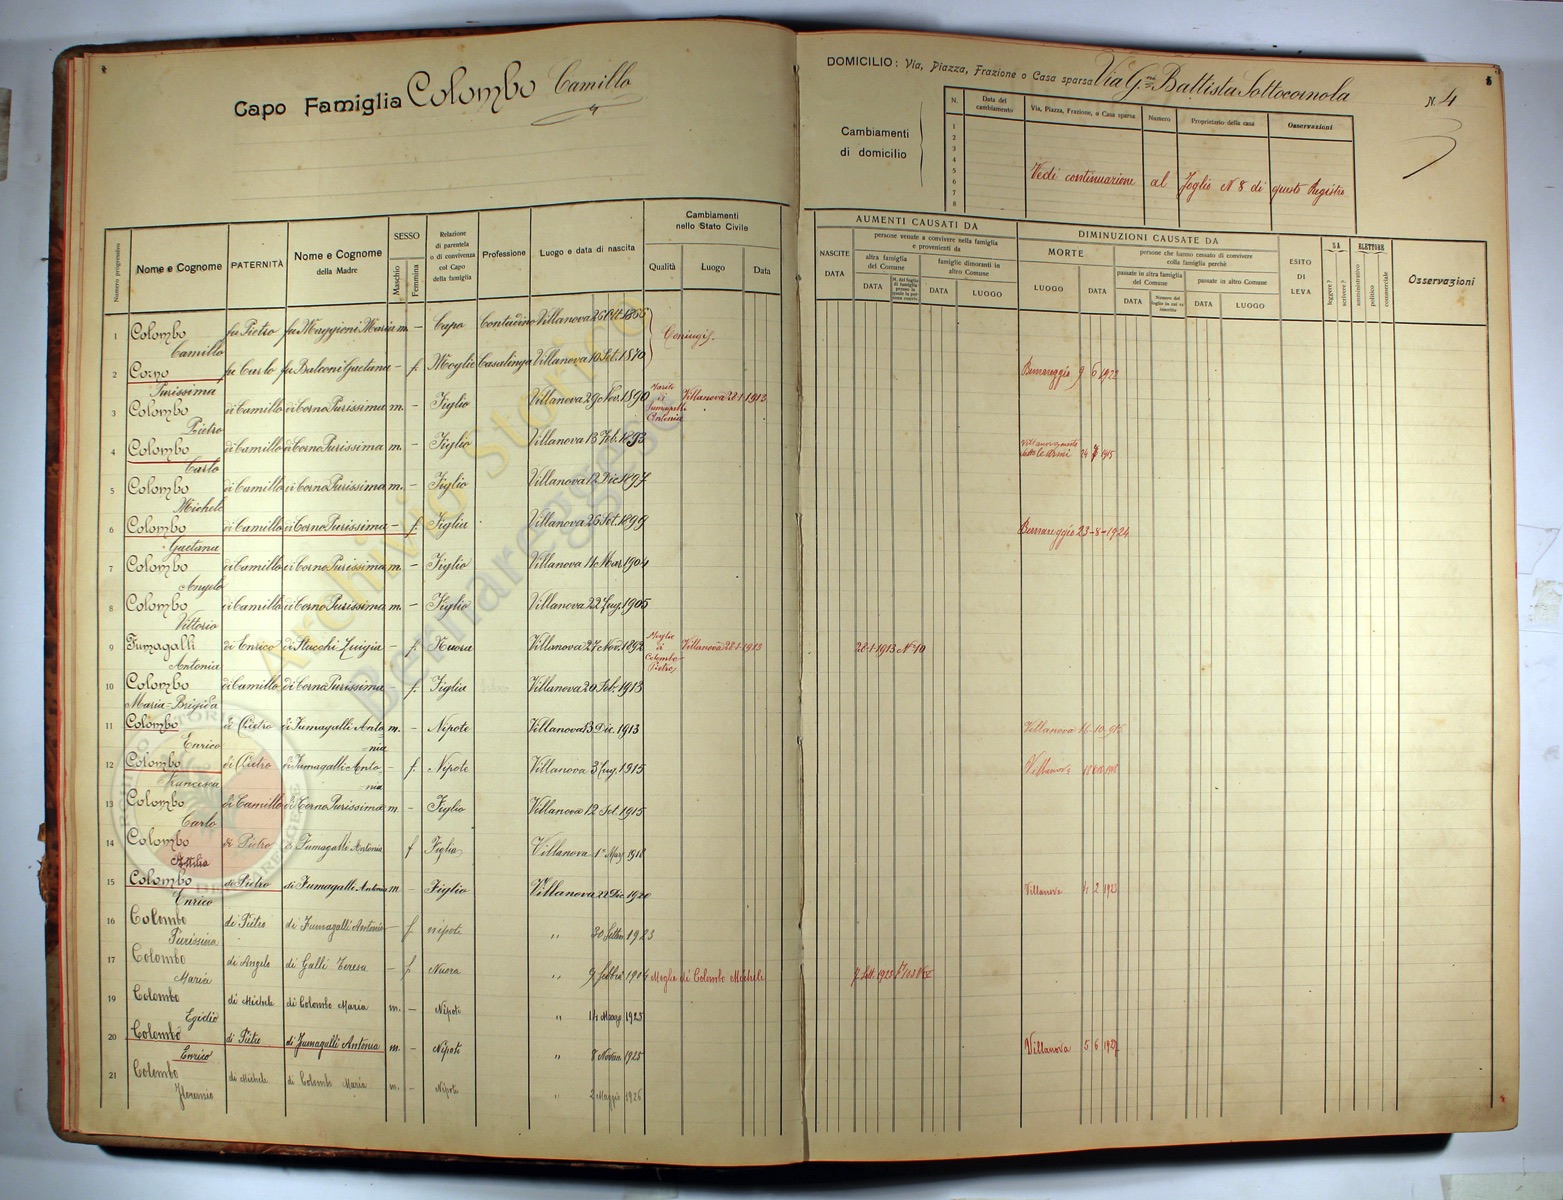 Capo Famiglia Colombo Camillo
4
DOMICILIO: Via, Piazza, Frazione o Casa sparsa Via G. Battista Sottocornola
N. 4
Cambiamenti di domicilio
N. Data del cambiamento Via, Piazza, Frazione, o Casa sparsa Numero Proprietario della casa Osservazioni
1
2
3
4
5
6
7
8
Vedi continuazione al foglio N 8 di questo Registro
Numero progressivo
Nome e Cognome
PATERNITÀ
Nome e Cognome della Madre
SESSO
Maschio
Femmina
Relazione di parentela o di convivenza col Capo della famiglia
Professione
Luogo e data di nascita
Cambiamenti nello Stato Civile
Qualità Luogo Data
AUMENTI CAUSATI DA
NASCITE
DATA
persone venute a convivere nella famiglia e provenienti da
altra famiglia del Comune
famiglie dimoranti in altro Comune
DATA
DATA LUOGO
DIMINUZIONI CAUSATE DA
MORTE
LUOGO DATA
persone che han cessato di convivere colla famiglia perchè
passate in altra famiglia del Comune
passate in altro Comune
DATA
DATA LUOGO
ESITO DI LEVA
SA
leggere?
scrivere?
ELETTORE
amministrativo
politico
commerciale
Osservazioni
1 Colombo Camillo fu Pietro fu Maggioni Maria m. – Capo Contadino Villanova 26 Ott. 1866 Coniugi
2 Corno Purissima fu Carlo fu Balconi Gaetana – f. Moglie Casalinga Villanova 10 Set. 1870 Bernareggio 9 6 1922
3 Colombo Pietro di Camillo di Corno Purissima m. – Figlio Villanova 29 Nov. 1890 Marito di Fumagalli Antonia Villanova 28-1-1913
4 Colombo Carlo di Camillo di Corno Purissima m. – Figlio Villanova 13 Feb. 1893 sotto le armi 24 7 1915
5 Colombo Michele di Camillo di Corno Purissima m. – Figlio Villanova 12 Dic. 1897
6 Colombo Gaetana di Camillo di Corno Purissima – f. Figlia Villanova 26 Set. 1899 Bernareggio 23-8-1924
7 Colombo Angelo di Camillo di Corno Purissima m. – Figlio Villanova 14 Mar 1904
8 Colombo Vittorio di Camillo di Corno Purissima m. – Figlio Villanova 22 Lug. 1905
9 Fumagalli Antonia di Enrico di Stucchi Luigia – f. Nuora Villanova 27 Nov. 1892 Moglie di Colombo Pietro Villanova 28-1-1913 28-1-1913 N° 10
10 Colombo Maria-Brigida di Camillo di Corno Purissima – f. Figlia Villanova 20 Feb. 1913
11 Colombo Enrico di Pietro di Fumagalli Antonia m. – Nipote Villanova 13 Dic. 1913 Villanova 16-10-915
12 Colombo Francesca di Pietro di Fumagalli Antonia – f. Nipote Villanova 3 Lug. 1915 Villanova
13 Colombo Carlo di Camillo di Corno Purissima m. – Figlio Villanova 12 Set. 1915
14 Colombo Attilia di Pietro di Fumagalli Antonia f Figlia Villanova 1° Marz 1918
15 Colombo Enrico di Pietro di Fumagalli Antonia m – Figlio Villanova 22 Dic 1920 Villanova 4 2 1923
16 Colombo Purissima di Pietro di Fumagalli Antonia – f. nipote " 30 Settem 1923
17 Colombo Maria di Angelo di Galli Teresa – f. Nuora " 9 febbr. 1904 Moglie di Colombo Michele 7 Sett. 1925
19 Colombo Egidio di Michele di Colombo Maria m. – Nipote " 14 Marzo 1925
20 Colombo Enrico di Pietro di Fumagalli Antonia m – Nipote " 8 Novem 1925 Villanova 5 6 1927
21 Colombo di Michele di Colombo Maria m. – Nipote " 2 Maggio 1926
Archivio Storico
Bernareggese